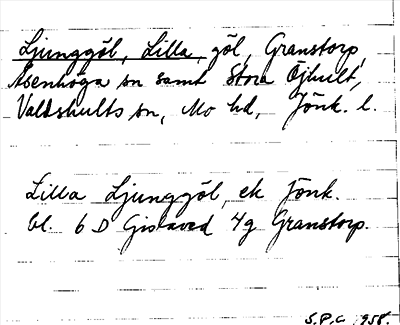 Ljunggöl, Lilla, göl, Granstorp,
Åsenhöga sn samt Stora Öjhult,
Valdshults sn, Mo hd, Jönk. l.
Lilla Ljunggöl, ek Jönk.
bl. 6 D Gislaved 4g Granstorp.
S.P.C. 1958.